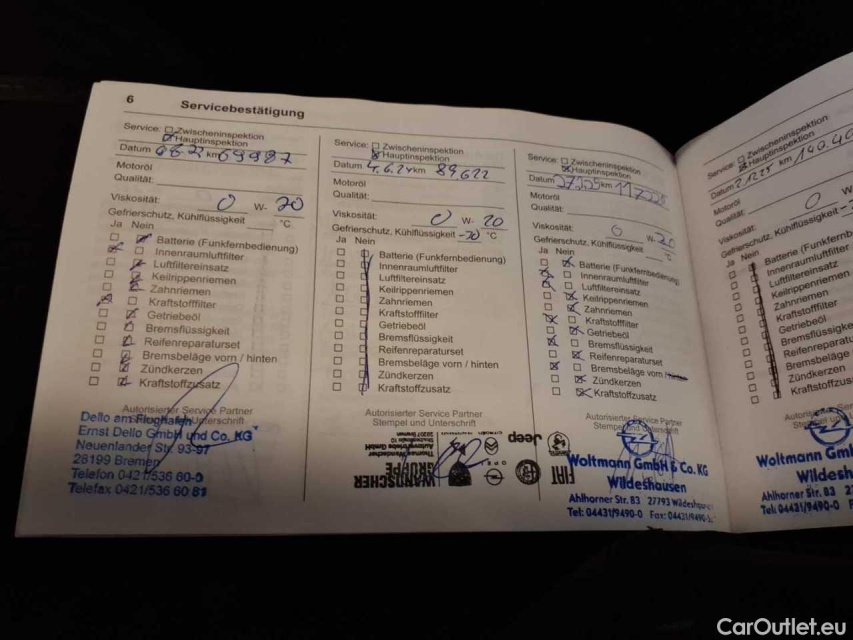 6
Servicebestätigung
Service: Zwischeninspektion
Hauptinspektion
Datum km 69987
Motoröl
Qualität:
Viskosität: 0 W- 20
Gefrierschutz, Kühlflüssigkeit °C
Ja Nein
Batterie (Funkfernbedienung)
Innenraumluftfilter
Luftfiltereinsatz
Keilrippenriemen
Zahnriemen
Kraftstofffilter
Getriebeöl
Bremsflüssigkeit
Reifenreparaturset
Bremsbeläge vorn / hinten
Zündkerzen
Kraftstoffzusatz
Autorisierter Service Partner
Stempel und Unterschrift
Dello am Flughafen
Ernst Dello GmbH und Co. KG
Neuenlander Str. 93-97
28199 Bremen
Telefon 0421/536 60-0
Telefax 0421/536 60 81
Service: Zwischeninspektion
Hauptinspektion
Datum 4.6.24 km 89622
Motoröl
Qualität:
Viskosität: 0 W- 20
Gefrierschutz, Kühlflüssigkeit -30 °C
Ja Nein
Batterie (Funkfernbedienung)
Innenraumluftfilter
Luftfiltereinsatz
Keilrippenriemen
Zahnriemen
Kraftstofffilter
Getriebeöl
Bremsflüssigkeit
Reifenreparaturset
Bremsbeläge vorn / hinten
Zündkerzen
Kraftstoffzusatz
Autorisierter Service Partner
Stempel und Unterschrift
WANDSCHER
GRUPPE
OPEL
Jeep
FIAT
Service: Zwischeninspektion
Hauptinspektion
Datum km
Motoröl
Qualität:
Viskosität: 0 W- 20
Gefrierschutz, Kühlflüssigkeit °C
Ja Nein
Batterie (Funkfernbedienung)
Innenraumluftfilter
Luftfiltereinsatz
Keilrippenriemen
Zahnriemen
Kraftstofffilter
Getriebeöl
Bremsflüssigkeit
Reifenreparaturset
Bremsbeläge vorn
Zündkerzen
Kraftstoffzusatz
Autorisierter Service Partner
Stempel und Unterschrift
Woltmann GmbH & Co. KG
Wildeshausen
Ahlhorner Str. 83 27793 Wildeshausen
Tel: 04431/9490-0 Fax: 04431/9490-
Service: Zwischeninspektion
Hauptinspektion
Datum km 140.40
Motoröl
Qualität:
Viskosität: 0
Gefrierschutz, Kühlflüssigkeit
Ja Nein
Batterie (Funkfernb
Innenraumluftfilter
Luftfiltereinsatz
Keilrippenriemen
Zahnriemen
Kraftstofffilter
Getriebeöl
Bremsflüssigke
Reifenreparatu
Bremsbeläge
Zündkerzen
Kraftstoffzus
Autorisierter Se
Stempel und
Woltmann Gmb
Wildesh
Ahlhorner Str. 83
Tel: 04431/9490-0
CarOutlet.eu